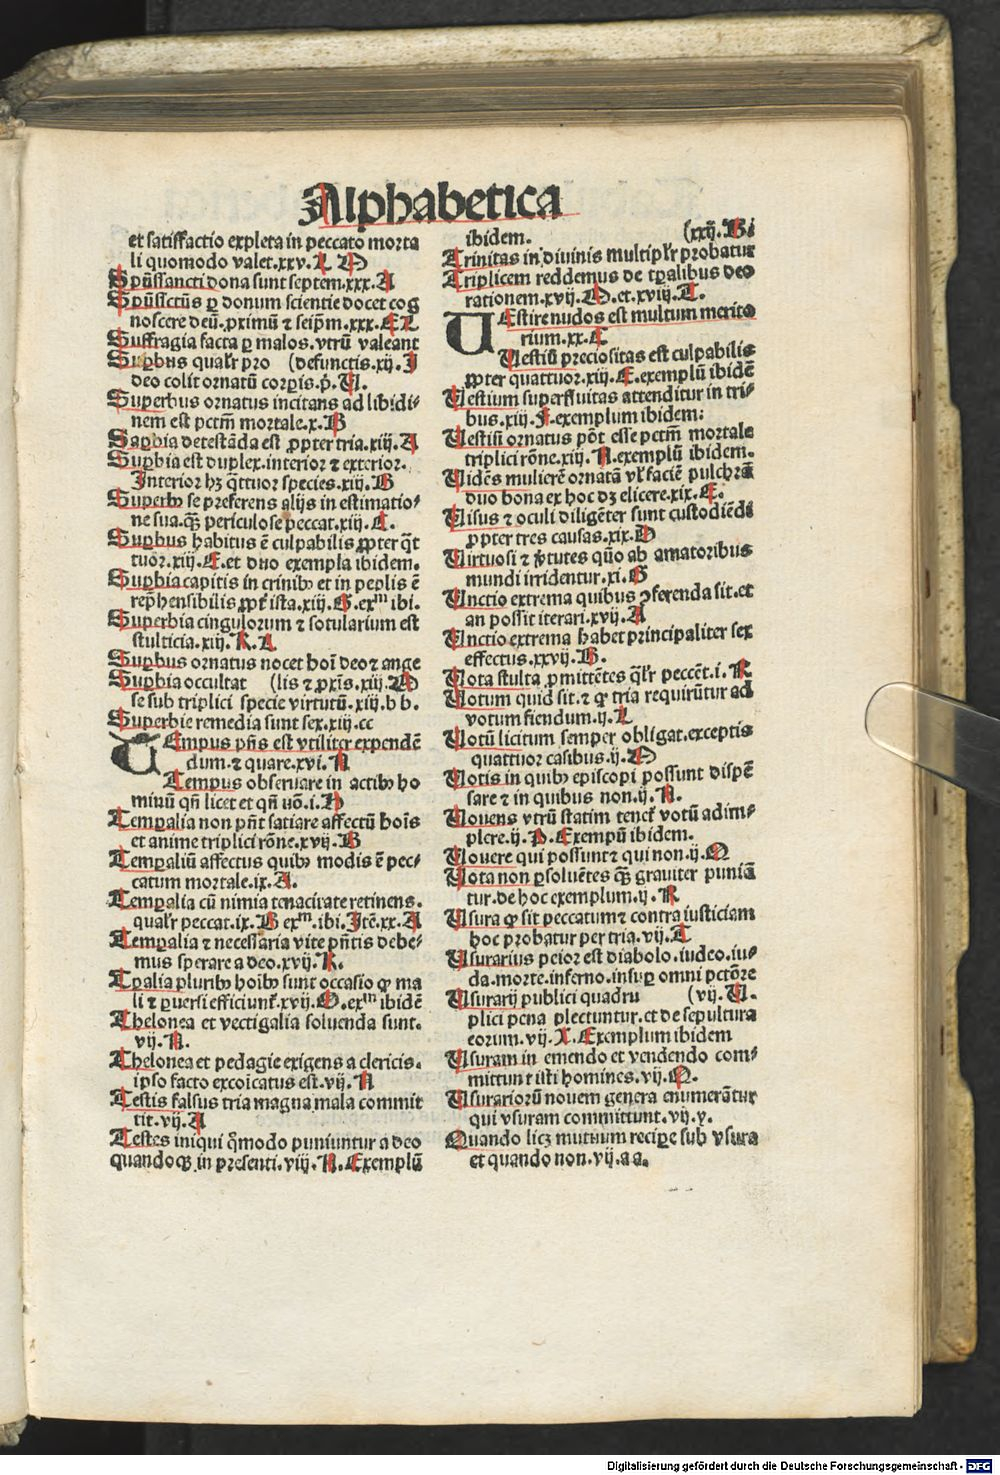 Alphabetica
et satisfactio expleta in peccato morta
li quomodo valet.xxv.L M
Spūssancti dona sunt septem.xxx.A
Spūssctūs ꝑ donum scientie docet cog
noscere deū.ꝓximū ⁊ seip̄m.xxx.E L
Suffragia facta ꝑ malos.vtrū valeant
Suꝑbus qualr̄ pro (defunctis.xij.I
deo colit ornatū corpis.
Superbus ornatus incitans ad libidi⸗
nem est pctm̄ mortale.x.B
Suꝑbia detestāda est ꝓpter tria.xiij.A
Suꝑbia est duplex.interior ⁊ exterior.
Interior hꝫ q̄ttuor species.xiij.B
Superbꝰ se preferens alijs in estimatio⸗
ne sua.qꝫ periculose peccat.xiij.C.
Suꝑbus habitus ē culpabilis ꝓpter q̄t
tuor.xiij.E.et duo exempla ibidem.
Suꝑbia capitis in crinibꝰ et in peplis ē
rep̄hensibilis ꝓpt̄ ista.xiij.G.exᵐ ibi.
Superbia cingulorum ⁊ sotularium est
stulticia.xiij.K.L
Suꝑbus ornatus nocet hoī deo ⁊ ange
Suꝑbia occultat (lis ⁊ ꝓxīs.xiij.M
se sub triplici specie virtutū.xiij.b b.
Superbie remedia sunt sex.xiij.cc
TEmpus pn̄s est vtiliter expendē
dum.⁊ quare.xvi.N
Tempus obseruare in actibꝰ ho
minū qn̄ licet et qn̄ nō.i.H
Temꝑalia non pn̄t satiare affectū hoīs
et anime triplici rōne.xvij.B
Temꝑaliū affectus quibꝰ modis ē pec⸗
catum mortale.ix.A.
Temꝑalia cū nimia tenacitate retinens.
qualr̄ peccat.ix.B exᵐ.ibi.Itē.xx.A
Temꝑalia ⁊ necessaria vite pn̄tis debe⸗
mus sperare a deo.xvij.K.
Tꝑalia pluribꝰ hoībꝰ sunt occasio ꝙ ma
li ⁊ ꝑuersi efficiunt̄.xvij.O.exᵐ ibidē
Thelonea et vectigalia soluenda sunt.
vij.N.
Thelonea et pedagie exigens a clericis.
ipso facto excōicatus est.vij.N
Testis falsus tria magna mala commit
tit.vij.A
Testes iniqui q̄modo puniuntur a deo
quandoqꝫ in presenti.viij.N.Exemplū
ibidem. (xxij.B i
Trinitas in diuinis multiplr̄ probatur
Triplicem reddemus de tꝑalibus deo
rationem.xvij.M.et.xviij.T.
UEstire nudos est multum merito
rium.xx.C
Uestiū preciositas est culpabilis
ꝓpter quattuor.xiij.E.exemplū ibidē
Uestium superfluitas attenditur in tri⸗
bus.xiij.F.exemplum ibidem:
Uestiū ornatus pōt esse pctm̄ mortale
triplici rōne.xiij.N.exemplū ibidem.
Uidēs mulierē ornatā vl̄ faciē pulchrā
duo bona ex hoc dꝫ elicere.xix.E.
Uisus ⁊ oculi diligēter sunt custodiēdi
ꝓpter tres causas.xix.D
Uirtuosi ⁊ v̄tutes quō ab amatoribus
mundi irridentur.xi.G
Unctio extrema quibus ꝯferenda sit.et
an possit iterari.xvij.A
Unctio extrema habet principaliter sex
effectus.xxvij.B.
Uota stulta ꝓmittētes q̄lr̄ peccēt.i.K
Uotum quid sit.⁊ ꝙ tria requirūtur ad
votum fiendum.ij.L
Uotū licitum semper obligat.exceptis
quattuor casibus.ij.M
Uotis in quibꝰ episcopi possunt dispē
sare ⁊ in quibus non.ij.N.
Uouens vtrū statim tenet̄ votū adim⸗
plere.ij.P.Exempū ibidem.
Uouere qui possunt ⁊ qui non.ij.O
Uota non ꝑsoluētes qꝫ grauiter puniā
tur.de hoc exemplum.ij.R
Usura ꝙ sit peccatum ⁊ contra iusticiam
hoc probatur per tria.vij.T
Usurarius peior est diabolo.iudeo.iu⸗
da.morte.inferno.insuꝑ omni pctōre
Usurarij publici quadru (vij.U.
plici pena plectuntur.et de sepultura
eorum.vij.X.Exemplum ibidem
Usuram in emendo et vendendo com⸗
mittunt isti homines.vij.Q.
Usurariorū nouem genera enumerātur
qui vsuram committunt.vij.y.
Quando licꝫ mutuum reciꝑe sub vsura
et quando non.vij.aa.
Digitalisierung gefördert durch die Deutsche Forschungsgemeinschaft - DFG